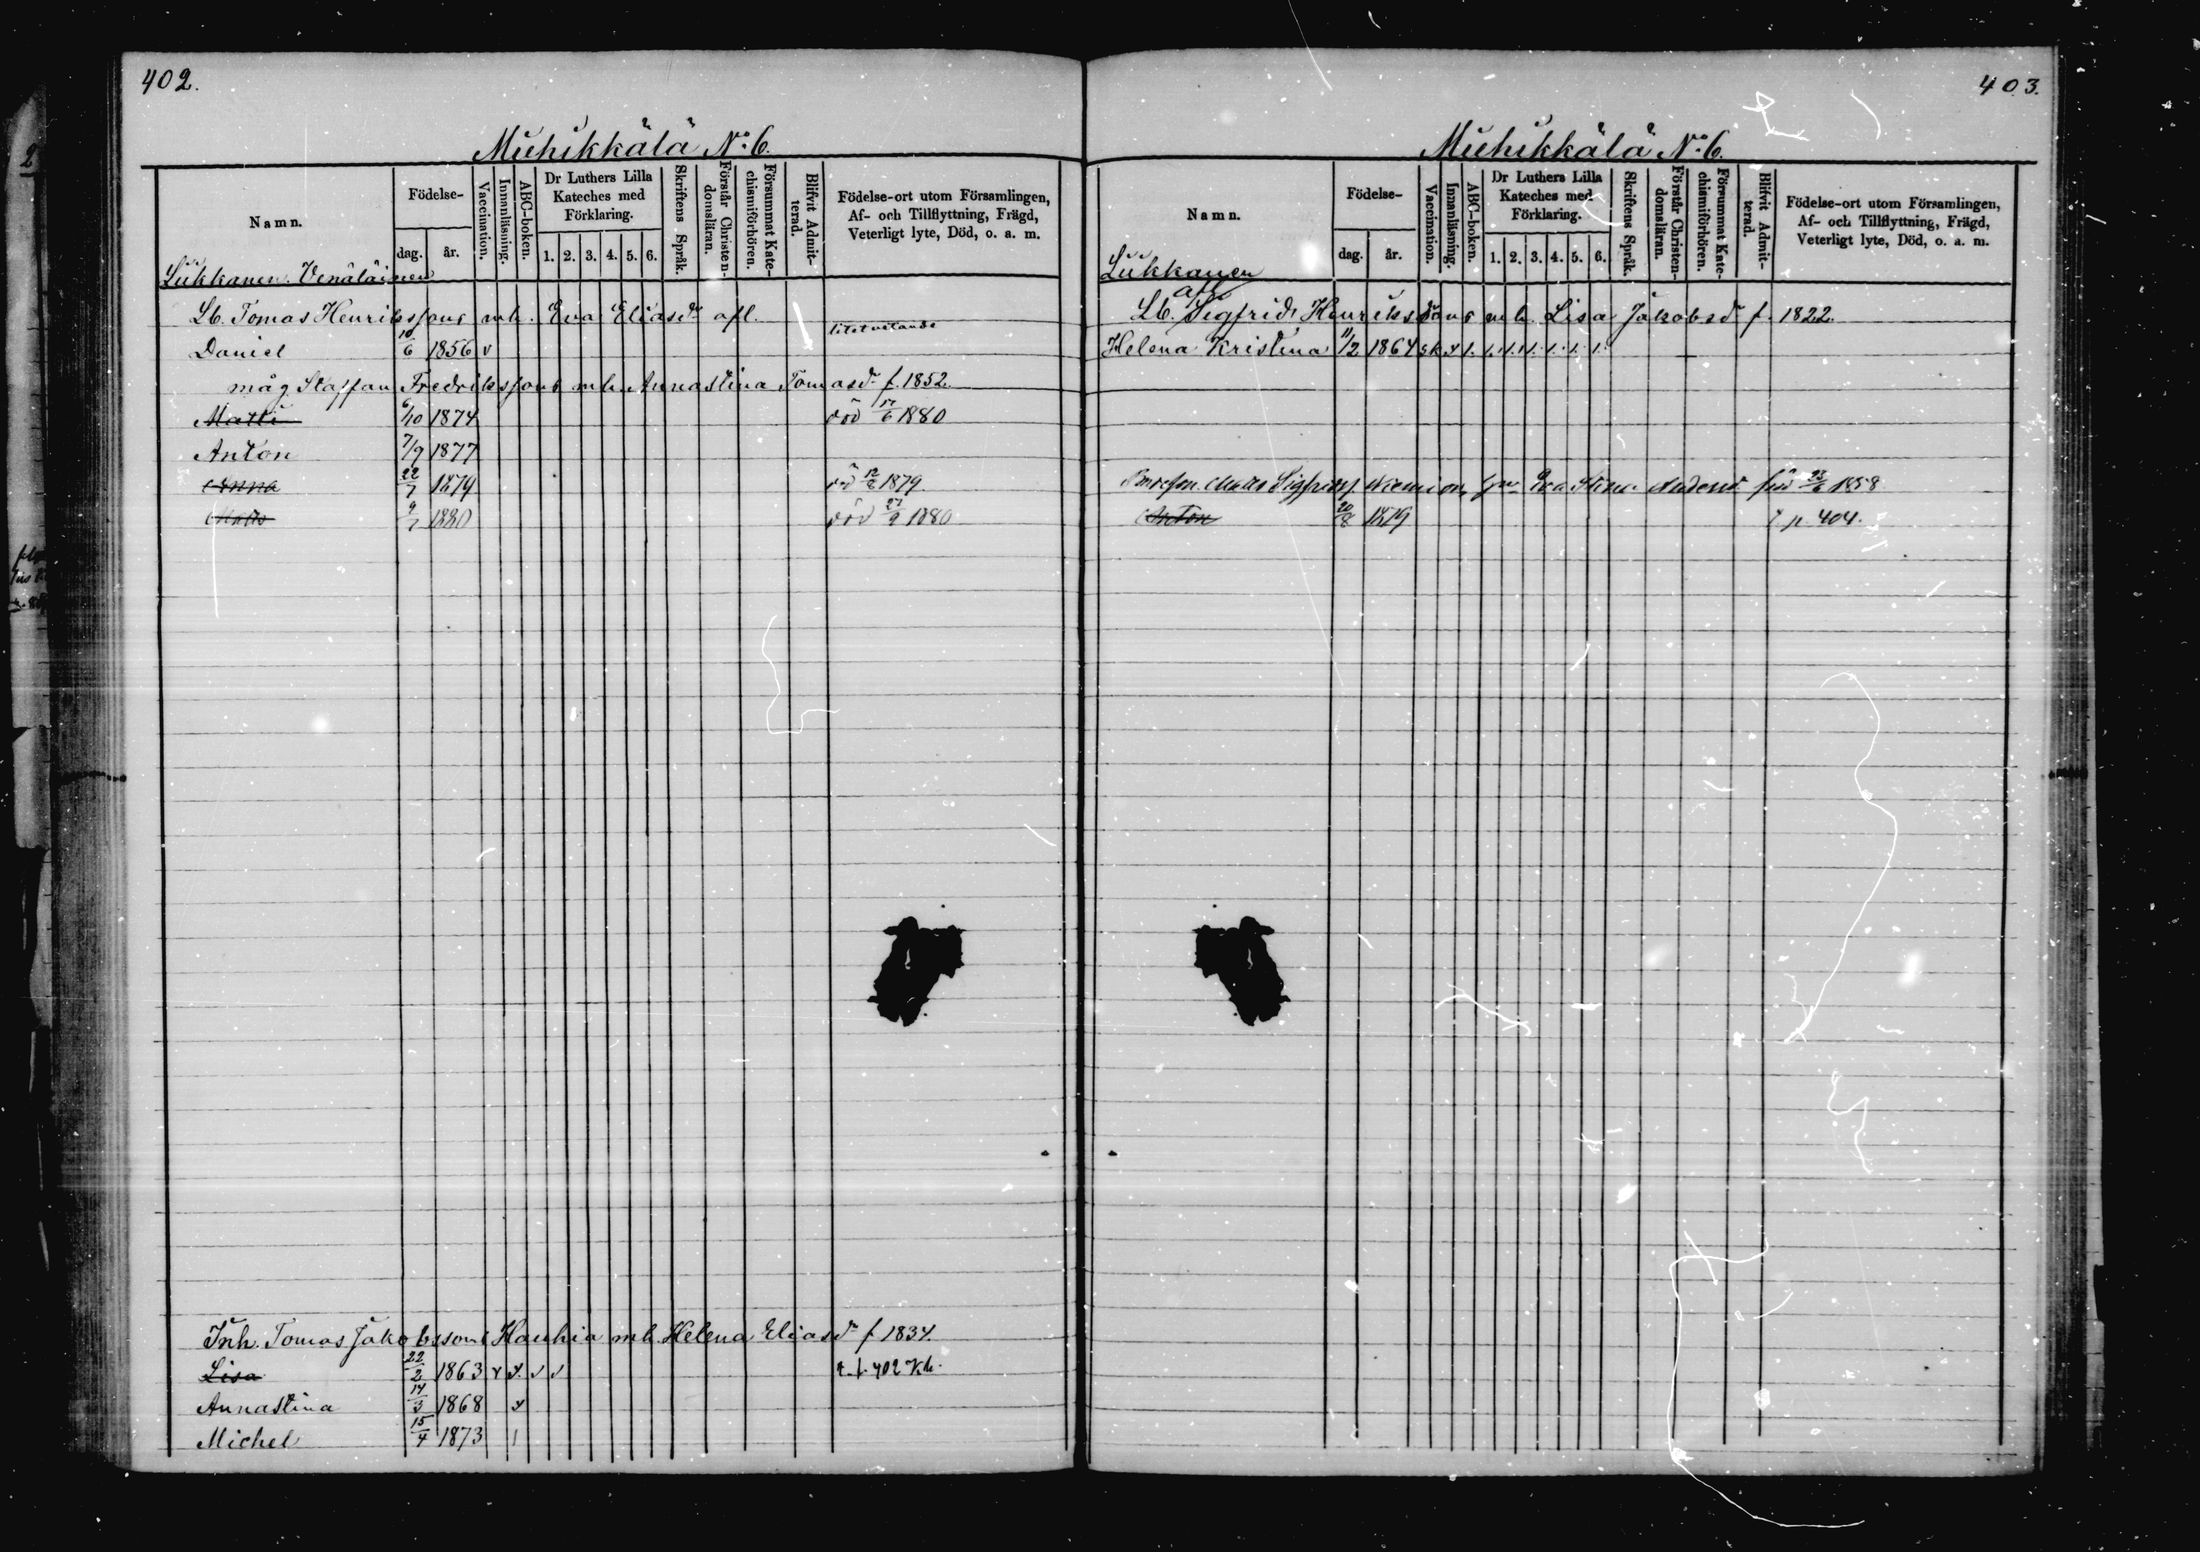 402.
Muhikkälä No: 6.
Namn.
Födelse-
dag.
år.
Vaccination.
Innanläsning.
ABC-boken.
Dr Luthers Lilla
Kateches med
Förklaring.
1. 2. 3. 4. 5. 6.
Skriftens Språk.
Förstår Christen-
domsläran.
Försummat Kate-
chismiförhören.
Blifvit Admit-
terad.
Födelse-ort utom Församlingen,
Af- och Tillflyttning, Frägd,
Veterligt lyte, Död, o. a. m.
Liikkanen. Venäläinen
Lb. Tomas Henrikssons m h. Eva Eliasdr afl.
Daniel 10/6 1856 v litet vetande
måg Staffan Fredrikssons m h. Annastina Tomasdr f. 1852.
Matti 6/10 1874 död 17/6 1880
Anton 7/9 1877
Anna 22/7 1879 död 12/8 1879
9/7 1880 död 27/9 1880
Inh. Tomas Jakobssons Hauhia m h. Helena Eliasdr f 1834.
Lisa 22/2 1863 402 Kb.
Annastina 14/3 1868
Michel 15/4 1873
403.
Muhikkälä No: 6.
Namn.
Födelse-
dag.
år.
Vaccination.
Innanläsning.
ABC-boken.
Dr Luthers Lilla
Kateches med
Förklaring.
1. 2. 3. 4. 5. 6.
Skriftens Språk.
Förstår Christen-
domsläran.
Försummat Kate-
chismiförhören.
Blifvit Admit-
terad.
Födelse-ort utom Församlingen,
Af- och Tillflyttning, Frägd,
Veterligt lyte, Död, o. a. m.
Liikkanen
afl.
Lb. Sigfrid Henrikssons m h. Lisa Jakobsd f. 1822.
Helena Kristina 11/2 1864 sk
Matts Sigfridss. Eva Stina född 23/6 1858
Anton 20/8 1879 p. 404.